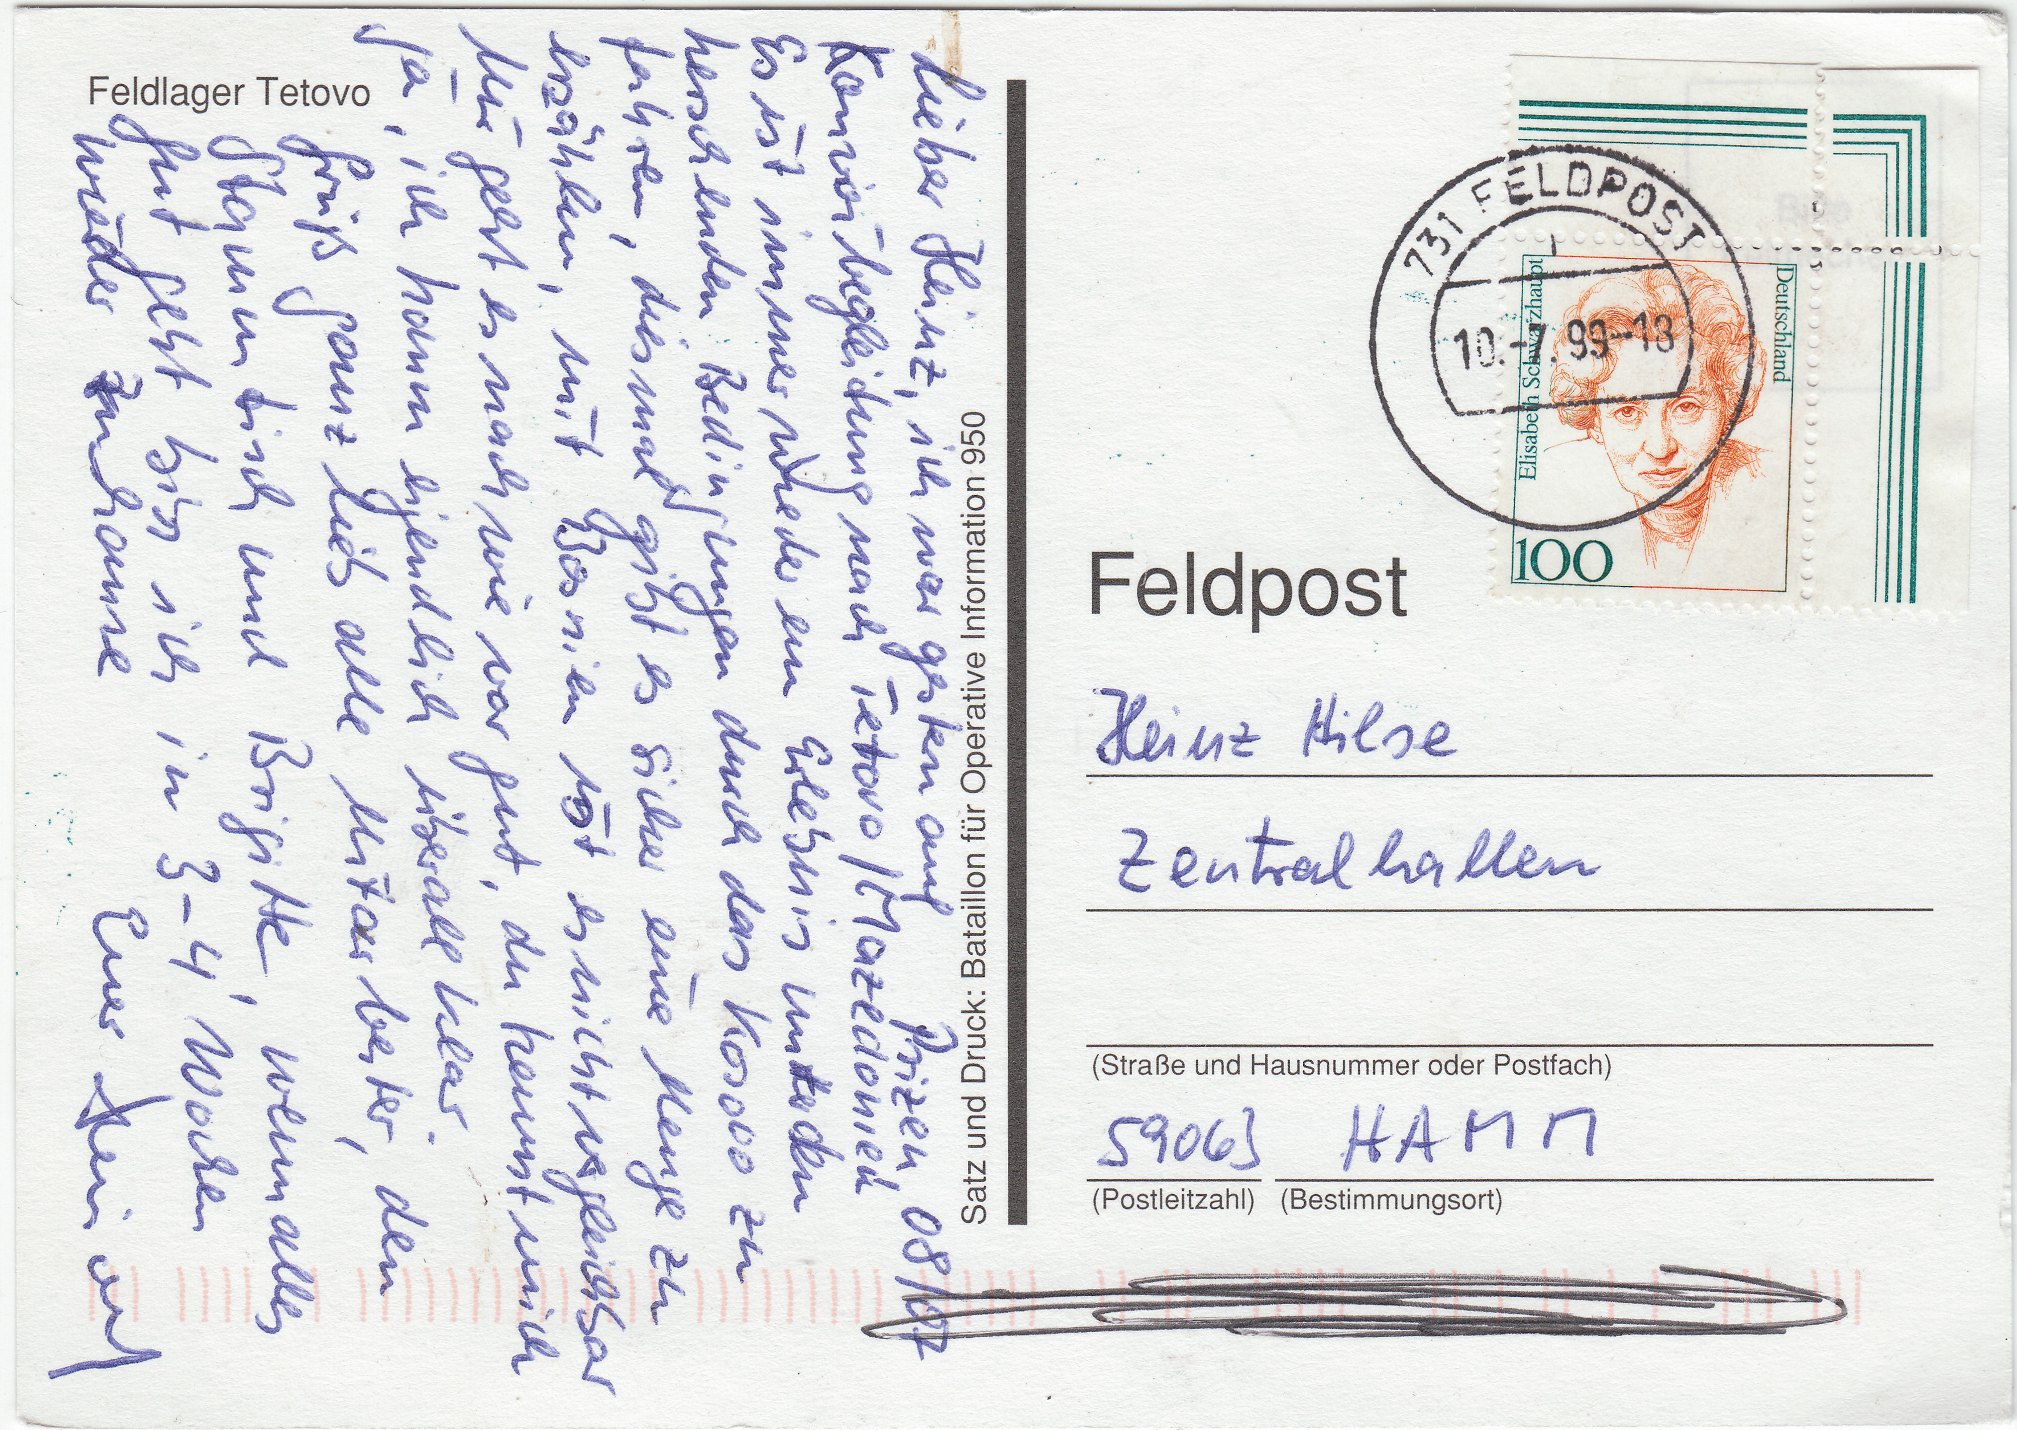 Feldlager Tetovo
Prizen, 08/07
Lieber Heinz, ich war gestern auf
Konvoibegleidung nach Tetovo/Mazedonien
Es ist immer wieder ein Erlebnis unter den
herschenden Bedingungen durch das Kosovo zu
fahren, diesmal gibt es sicher eine Menge zu
erzählen, mit Bosnien ist es nicht vergleichbar
Mir geht es nach wie vor gut, du kennst mich
ja, ich komm eigendlich überall klar.
Grüß ganz lieb alle Mitarbeiter, den
Stammtisch und Brigitte, wenn alles
gut geht bin ich in 3-4 Wochen
wieder zuhause
Euer
Satz und Druck: Bataillon für Operative Information 950
731 FELDPOST
10.-7.99-18
Deutschland
Elisabeth Schwarzhaupt
100
Feldpost
Heinz Hilse
Zentralhallen
(Straße und Hausnummer oder Postfach)
59063 HAMM
(Postleitzahl) (Bestimmungsort)